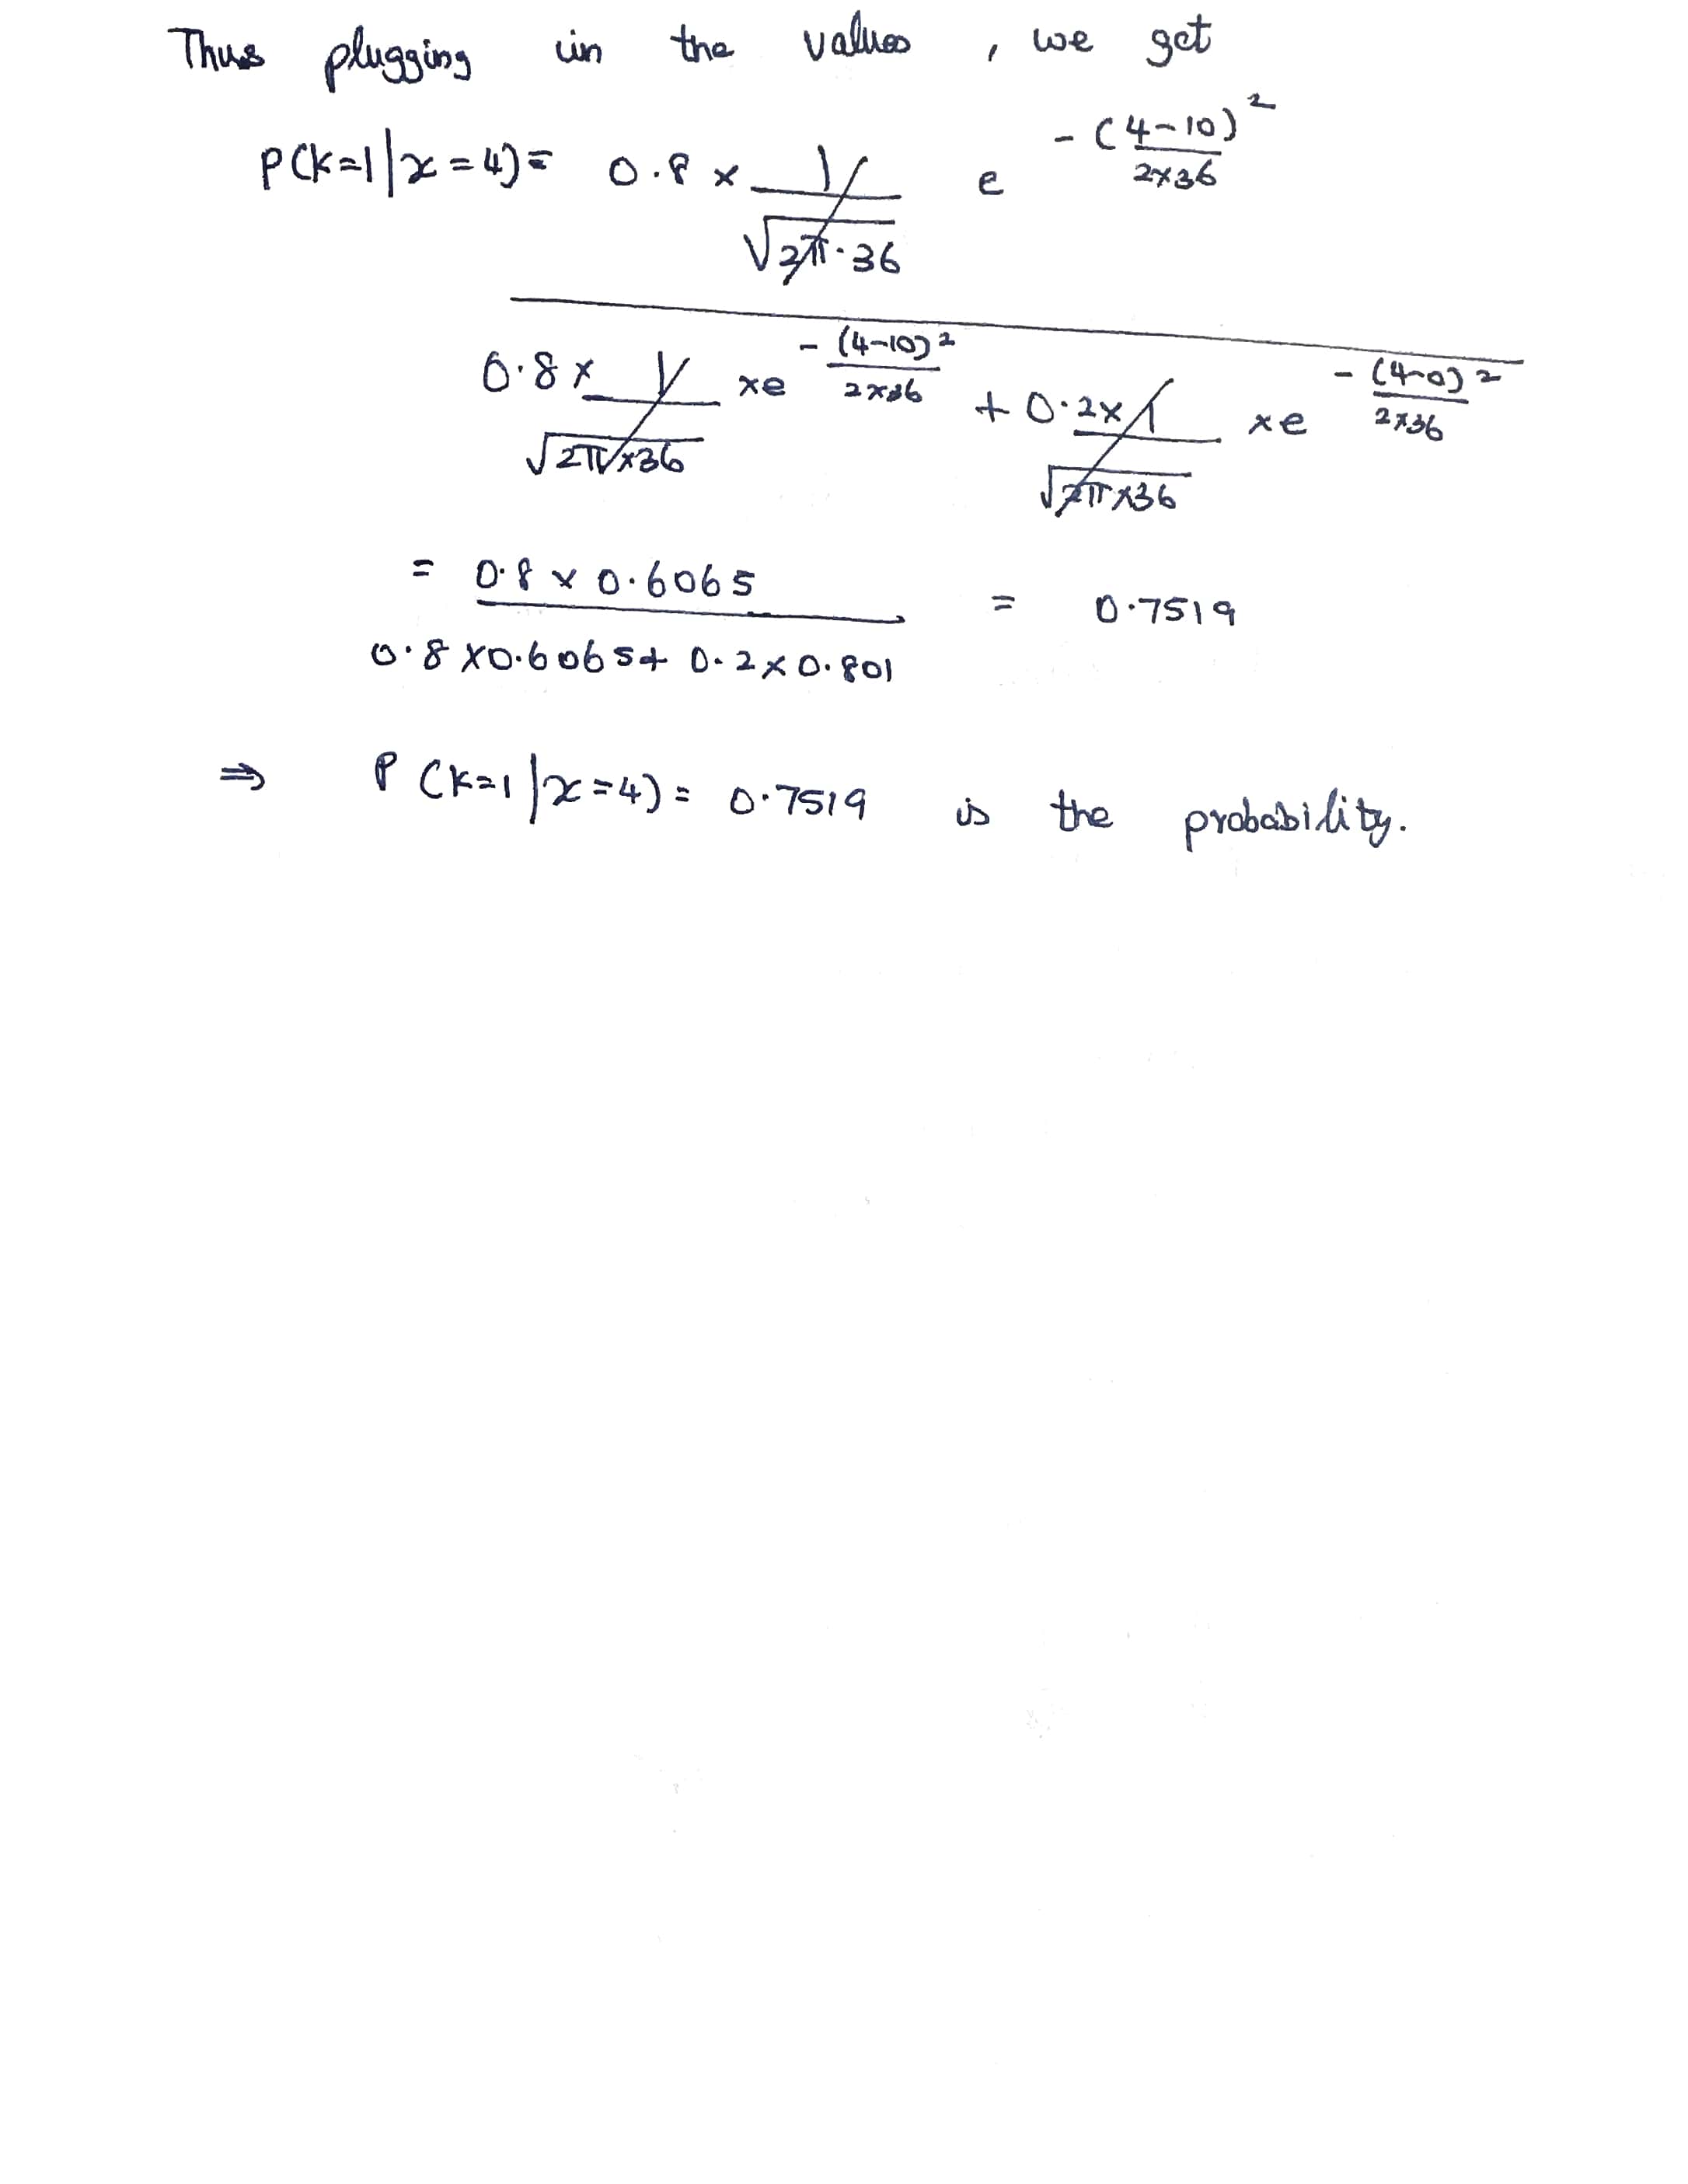 Thus plugging in the values, we get
P(K=1|x=4)= 0.8 × 1/√2π·36 e -(4-10)²/2×36
0.8 × 1/√2π×36 ×e -(4-10)²/2×36 + 0.2× 1/√2π×36 ×e -(4-0)²/2×36
= 0.8 × 0.6065 = 0.7519
0.8 ×0.6065+ 0.2×0.801
⇒ P(K=1|x=4)= 0.7519 is the probability.